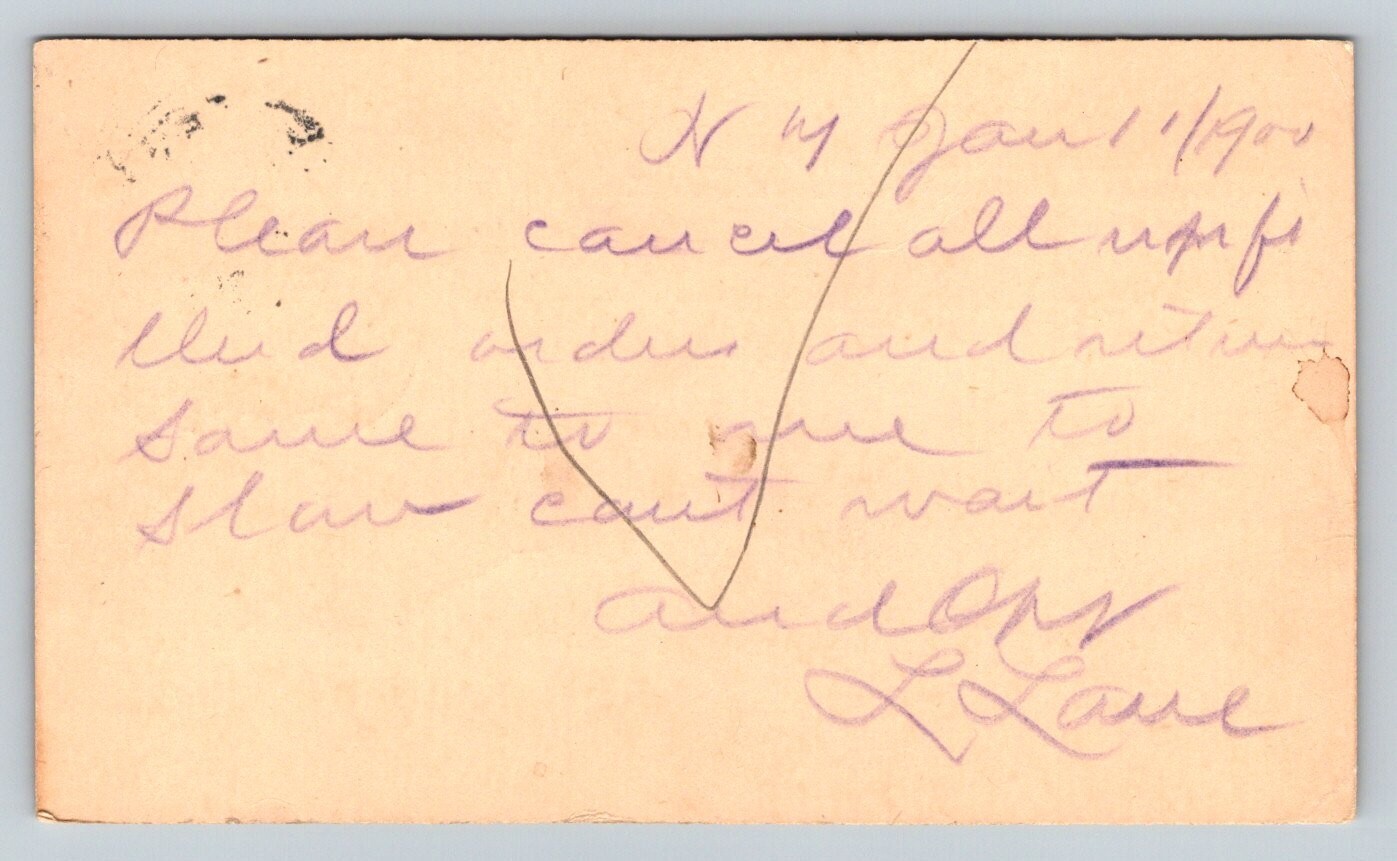 N Y Jan 11/1900
Please cancel all unfi
lled orders and return
same to me to
slow cant wait
and
L Lane